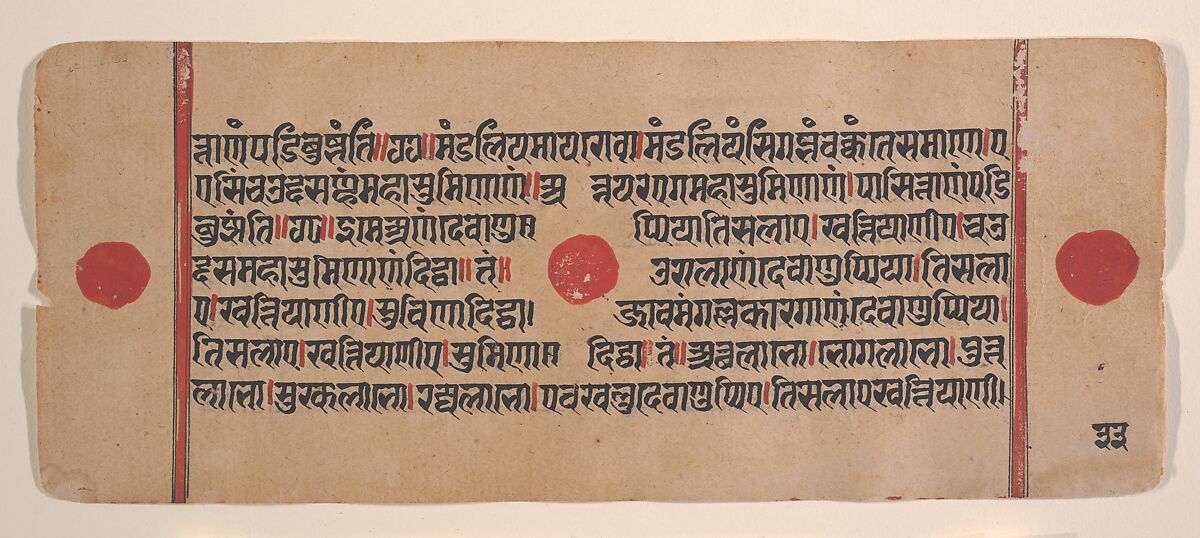 त्ताणं पडिबुझंति॥७७॥मंडलियमायारो वा।मंडलियंसि गब्भं वक्कंते समाणे।ए
एसिं चउद्दसण्हं महासुमिणाणं॥अन्नयरं एगं महासुमिणाणं।पासित्ताणं पडि
बुझंति॥७८॥इमेअणं देवाणुप्पियातिसलाए।खत्तियाणीए।चउ
द्दसमहासुमिणाणं दिट्ठा॥तं॥उरालाणं देवाणुप्पिया।तिसला
ए।खत्तियाणीए।सुविणा दिट्ठा।जाव मंगल्लकारगाणं देवाणुप्पिया।
तिसलाए।खत्तियाणीए।सुमिणा दिट्ठा॥तं॥अत्थलाभो।भोगलाभो।पुत्त
लाभो।सुक्खलाभो।रज्जलाभो।एवं खलु देवाणुप्पिए।तिसलाए खत्तियाणी।
३३